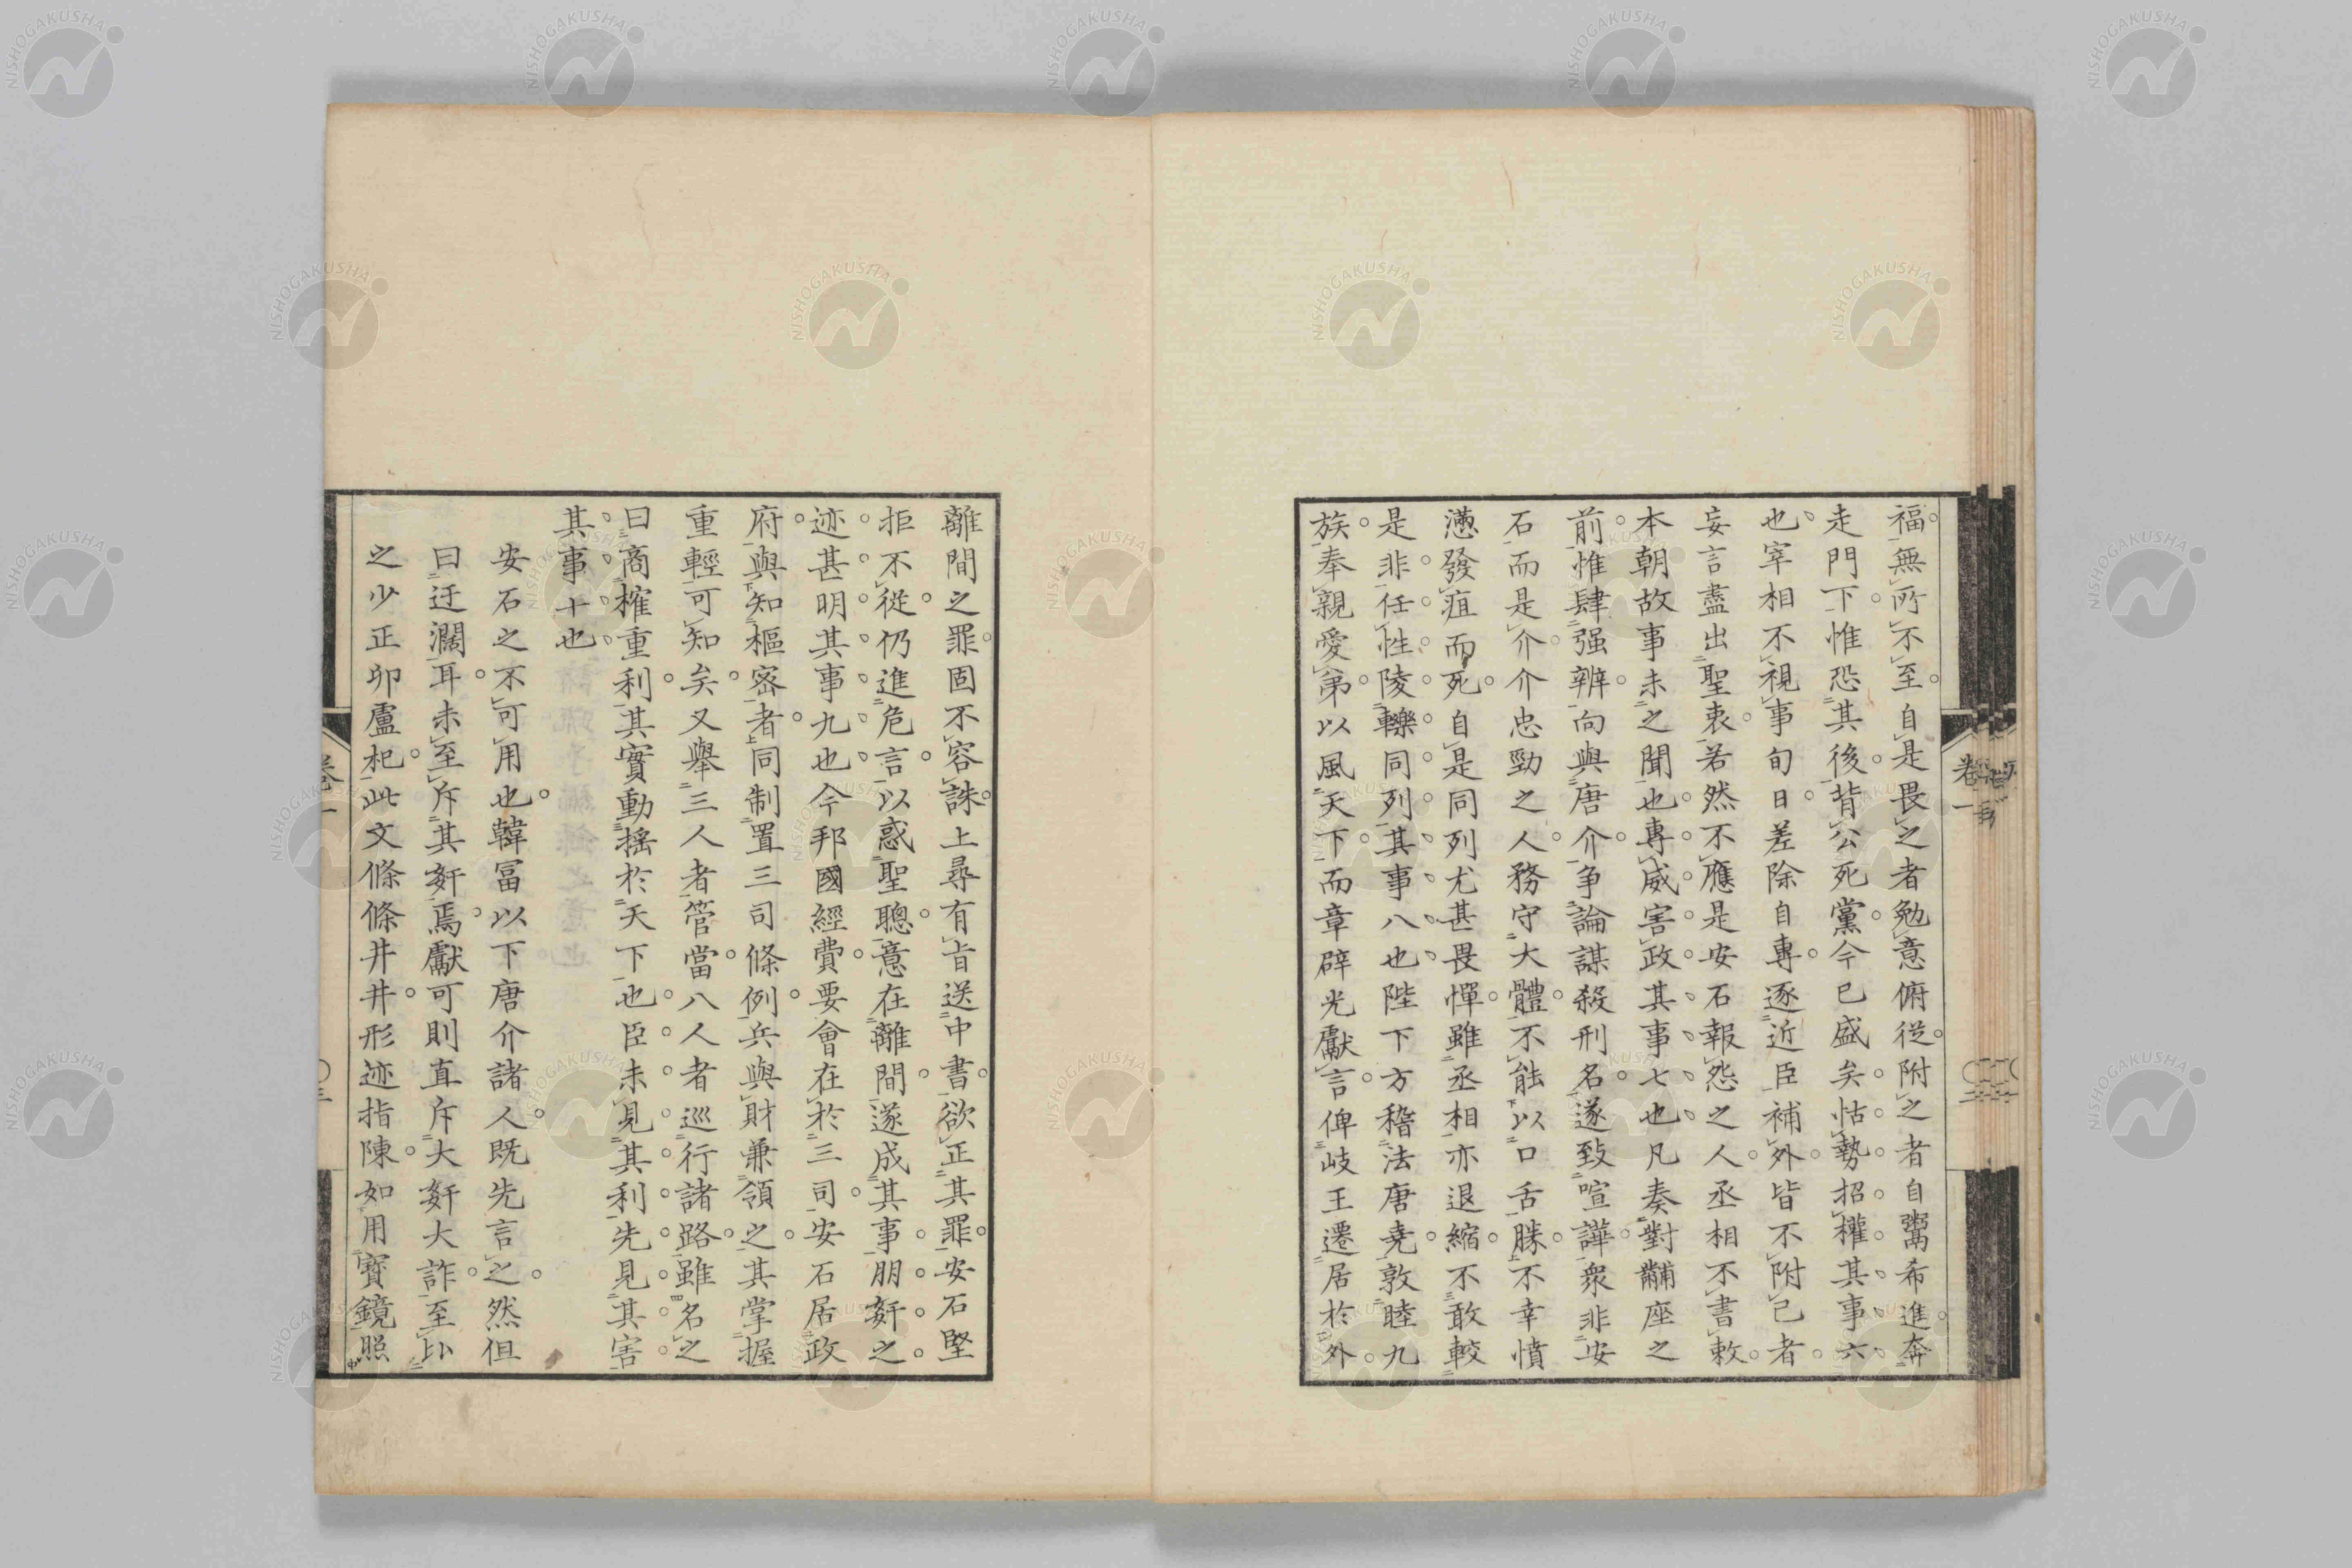 福無所不至自是畏之者勉意俯從附之者自鬻希進奔
走門下惟恐其後背公死黨今已盛矣怙勢招權其事六
也宰相不視事旬日差除自專逐近臣補外皆不附己者
妄言盡出聖衷若然不應是安石報怨之人丞相不書敕
本朝故事未之聞也專威害政其事七也凡奏對黼座之
前惟肆强辨向與唐介爭論謀殺刑名遂致喧譁眾非安
石而是介介忠勁之人務守大體不能以口舌勝不幸憤
懣發疽而死自是同列尤甚畏憚雖丞相亦退縮不敢較
是非任性陵轢同列其事八也陛下方稽法唐堯敦睦九
族奉親愛弟以風天下而章辟光獻言俾岐王遷居於外
離間之罪固不容誅上尋有旨送中書欲正其罪安石堅
拒不從仍進危言以惑聖聰意在離間遂成其事朋姧之
迹甚明其事九也今邦國經費要會在於三司安石居政
府與知樞密者同制置三司條例兵與財兼領之其掌握
重輕可知矣又舉三人者管當八人者巡行諸路雖名之
曰商榷重利其實動搖於天下也臣未見其利先見其害
其事十也
安石之不可用也韓冨以下唐介諸人既先言之然但
曰迂濶耳未至斥其姧焉獻可則直斥大姧大詐至比
之少正卯盧杞此文條條井井形迹指陳如用寶鏡照
卷一
NISHOGAKUSHA